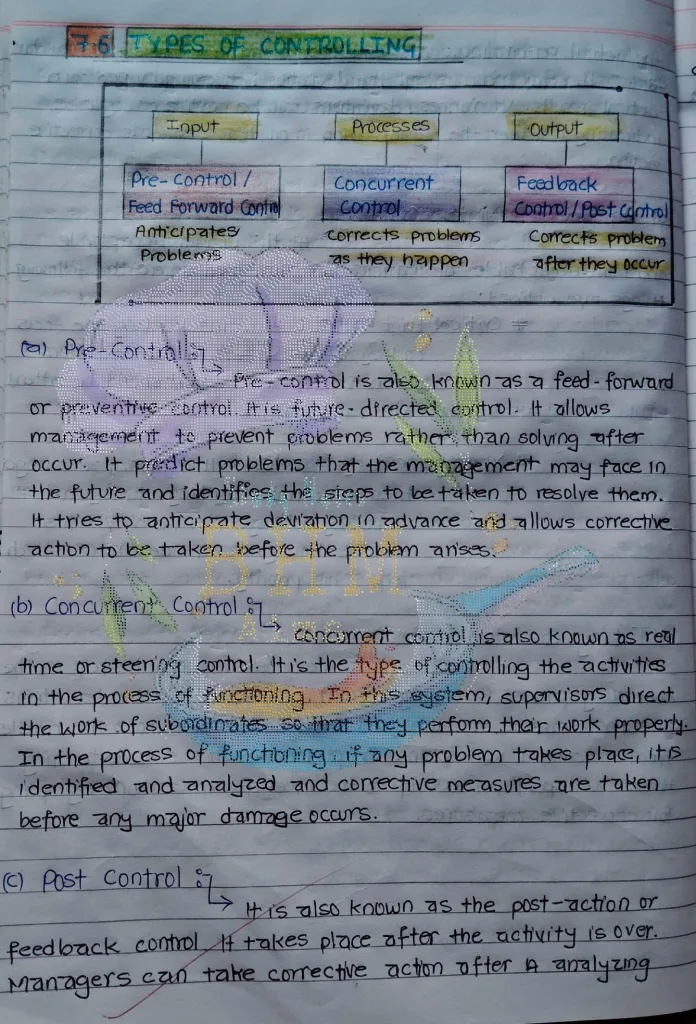 7.6 TYPES OF CONTROLLING
Input Processes Output
Pre-Control / Concurrent Feedback
Feed Forward Control Control Control/Post Control
Anticipates corrects problems Corrects problem
Problems as they happen after they occur
(a) Pre-Control :
Pre-control is also known as a feed-forward
or preventive control. It is future-directed control. It allows
management to prevent problems rather than solving after
occur. It predict problems that the management may face in
the future and identifies the steps to be taken to resolve them.
It tries to anticipate deviation in advance and allows corrective
action to be taken before the problem arises.
BHM
(b) Concurrent Control :
concurrent control is also known as real
time or steering control. It is the type of controlling the activities
in the process of functioning. In this system, supervisors direct
the work of subordinates so that they perform their work properly.
In the process of functioning, if any problem takes place, it is
identified and analyzed and corrective measures are taken
before any major damage occurs.
(c) Post Control :
It is also known as the post-action or
feedback control. It takes place after the activity is over.
Managers can take corrective action after A analyzing